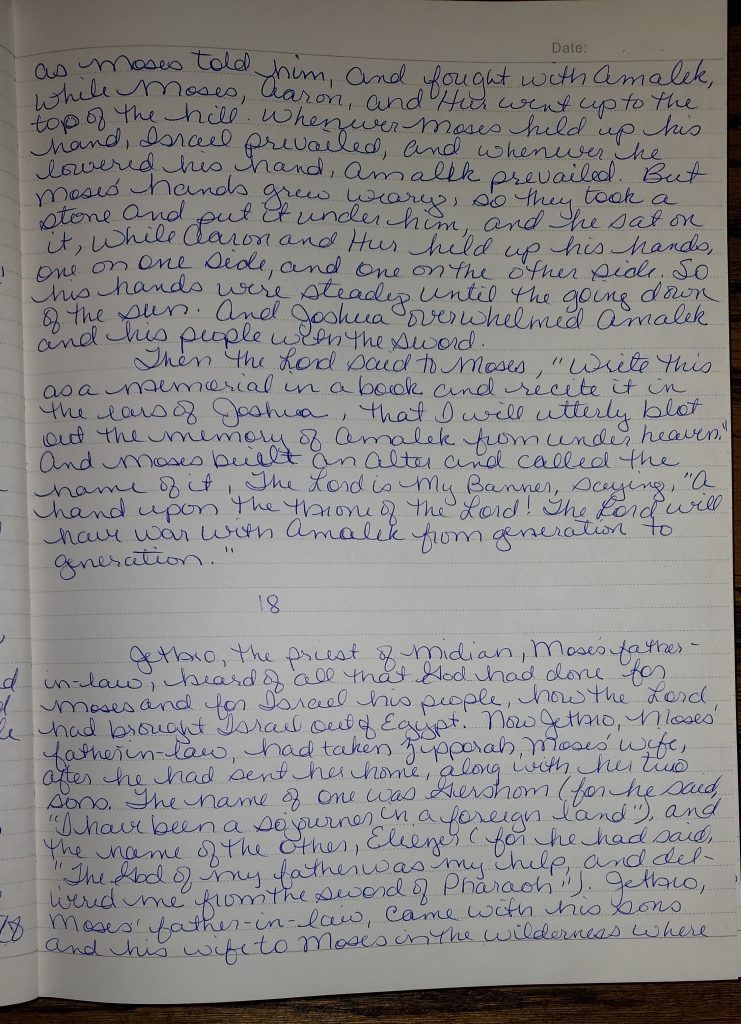 Date:
as Moses told him, and fought with Amalek,
while Moses, Aaron, and Hur went up to the
top of the hill. Whenever Moses held up his
hand, Israel prevailed, and whenever he
lowered his hand, Amalek prevailed. But
Moses' hands grew weary, so they took a
stone and put it under him, and he sat on
it, while Aaron and Hur held up his hands,
one on one side, and one on the other side. So
his hands were steady until the going down
of the sun. And Joshua overwhelmed Amalek
and his people with the sword.
Then the Lord said to Moses, "Write this
as a memorial in a book and recite it in
the ears of Joshua, that I will utterly blot
out the memory of Amalek from under heaven."
And Moses built an alter and called the
name of it, The Lord is My Banner, saying, "A
hand upon the throne of the Lord! The Lord will
have war with Amalek from generation to
generation."
18
Jethro, the priest of Midian, Moses' father-
in-law, heard of all that God had done for
Moses and for Israel his people, how the Lord
had brought Israel out of Egypt. Now Jethro, Moses'
father in-law, had taken Zipporah, Moses' wife,
after he had sent her home, along with her two
sons. The name of one was Gershom (for he said,
"I have been a sojourner in a foreign land"), and
the name of the other, Eliezer (for he had said,
"The God of my father was my help, and del-
ivered me from the sword of Pharaoh"). Jethro,
Moses' father-in-law, came with his sons
and his wife to Moses in the wilderness where